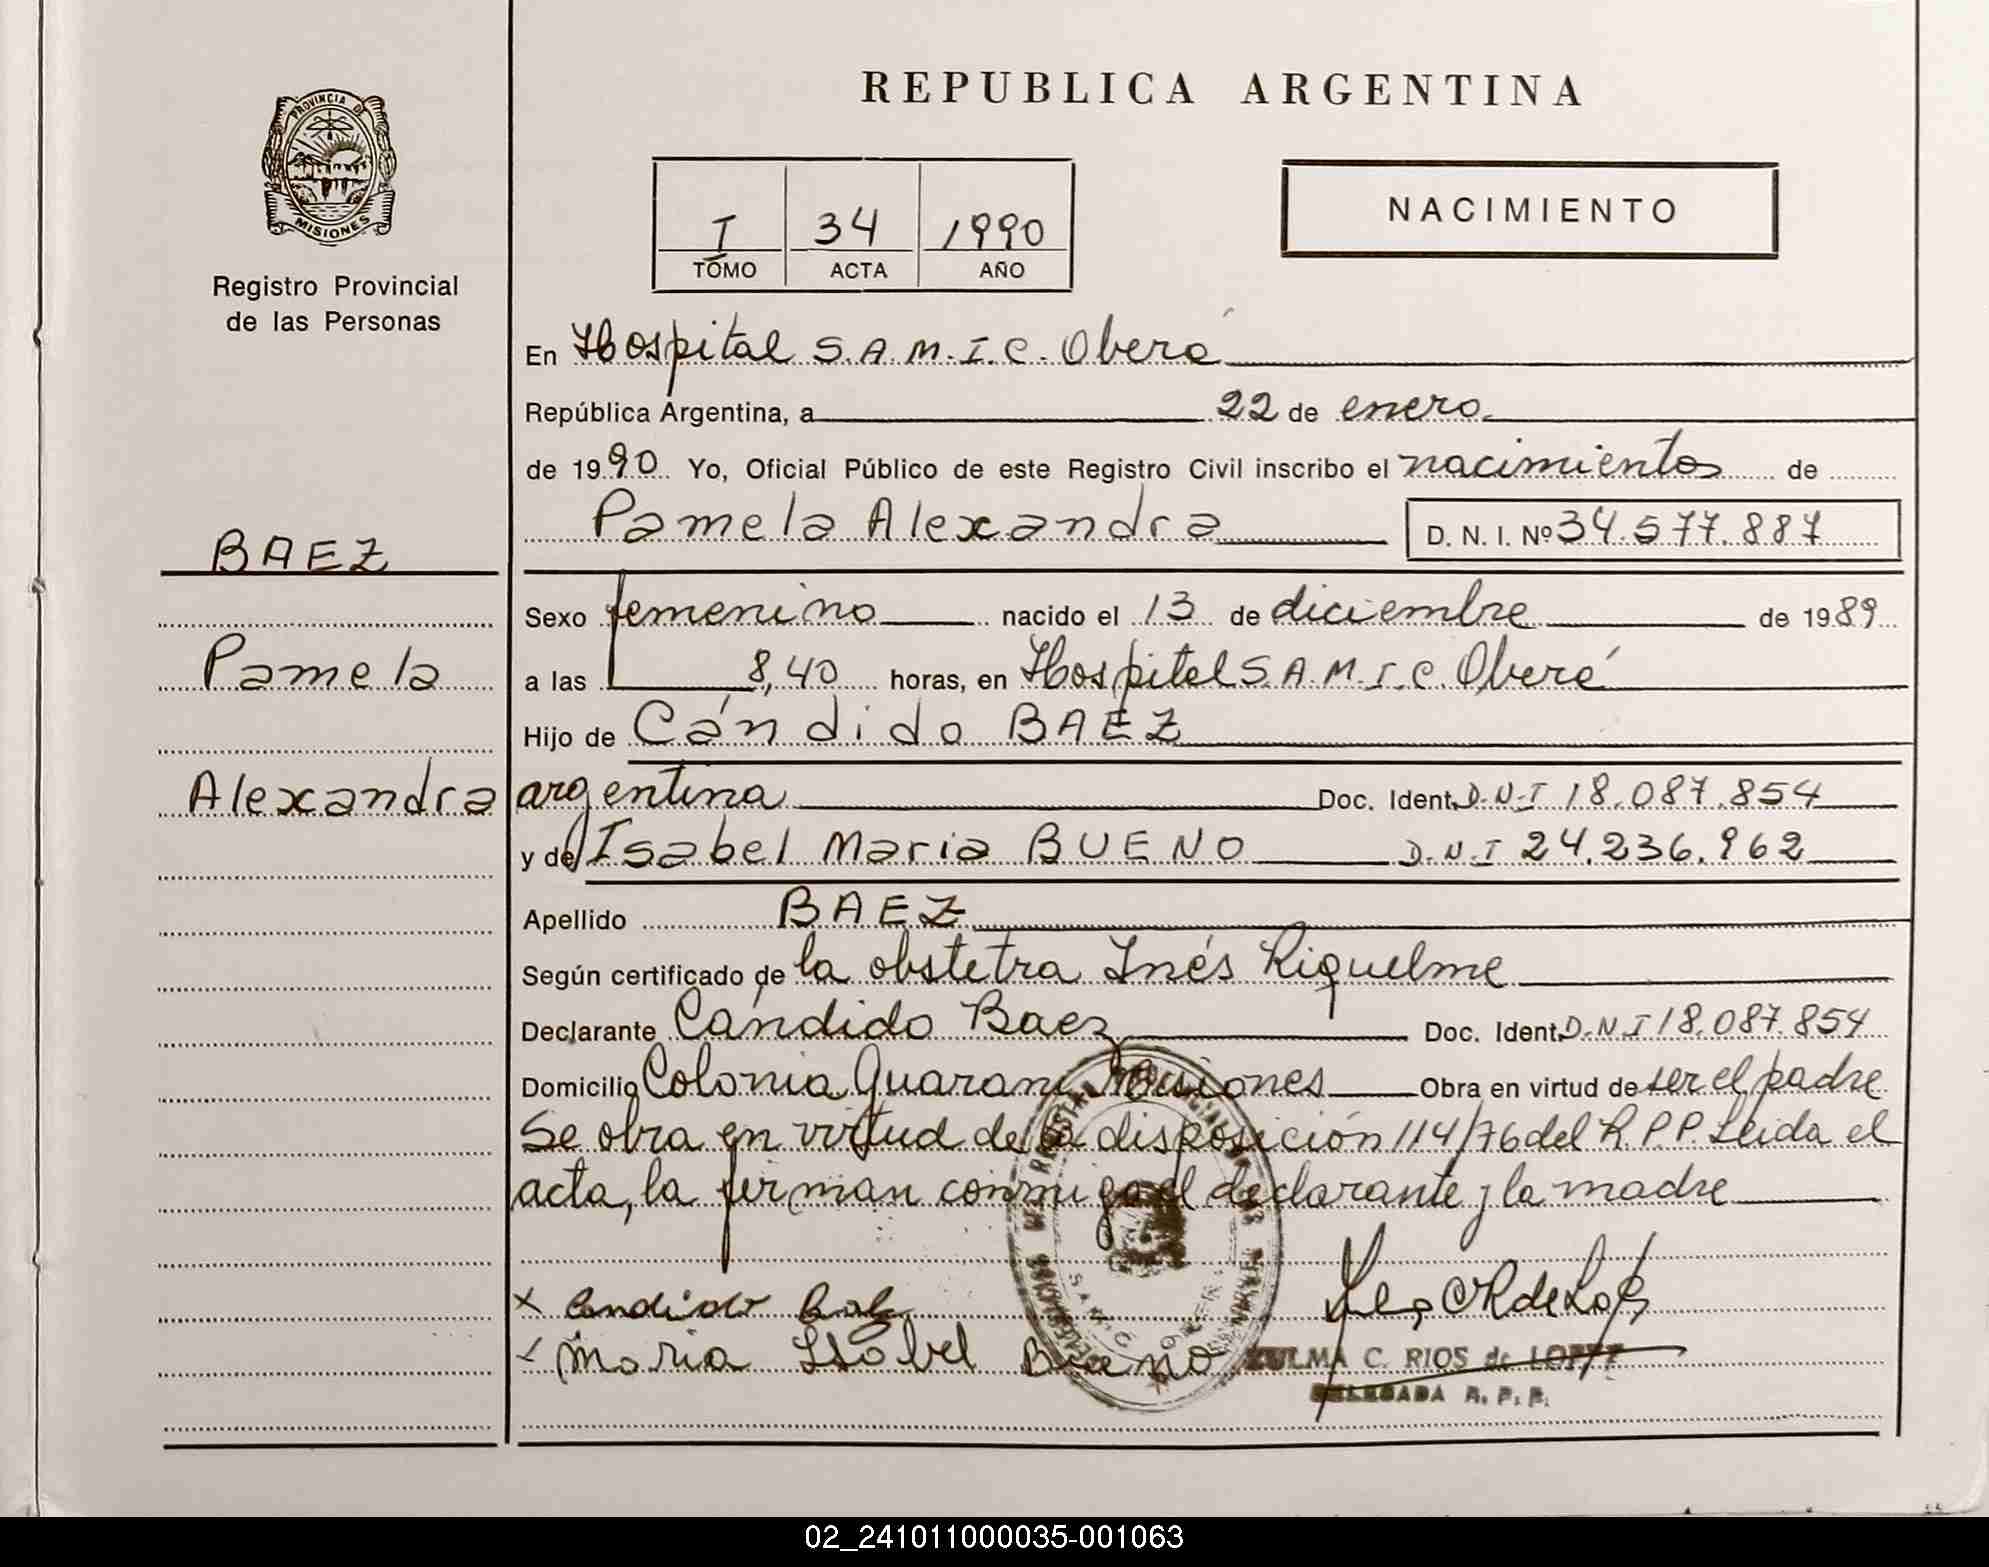 PROVINCIA DE
MISIONES
Registro Provincial
de las Personas
BAEZ
Pamela
Alexandra
REPUBLICA ARGENTINA
I 34 1990
TOMO ACTA AÑO
NACIMIENTO
En Hospital S.A.M.I.C. Oberá
República Argentina, a 22 de enero
de 1990 Yo, Oficial Público de este Registro Civil inscribo el nacimiento de
Pamela Alexandra D. N. I. Nº 34.577.887
Sexo femenino nacido el 13 de diciembre de 1989
a las 8,40 horas, en Hospital S.A.M.I.C. Oberá
Hijo de Cándido BAEZ
argentina Doc. Ident. D.N.I 18.087.854
y de Isabel Maria BUENO D.N.I 24.236.962
Apellido BAEZ
Según certificado de la obstetra Inés Riquelme
Declarante Cándido Baez Doc. Ident. D.N.I 18.087.854
Domicilio Colonia Guaraní Misiones Obra en virtud de ser el padre
Se obra en virtud de la disposición 114/76 del R.P.P. Leida el
acta, la firman conmigo el declarante y la madre
x Candido Baez
Maria Isabel Bueno
ZULMA C. RIOS de LOPEZ
DELEGADA R. P. P.
02_241011000035-001063